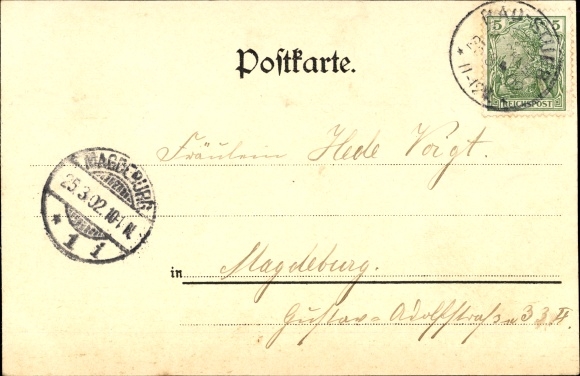 BAD SUDER
5 5
11-12V
REICHSPOST
Postkarte.
Fräulein Hede Voigt.
MAGDEBURG
25.3.02.10-11N.
* 1 i
in Magdeburg.
Gustav-Adolfstraße 33 II.